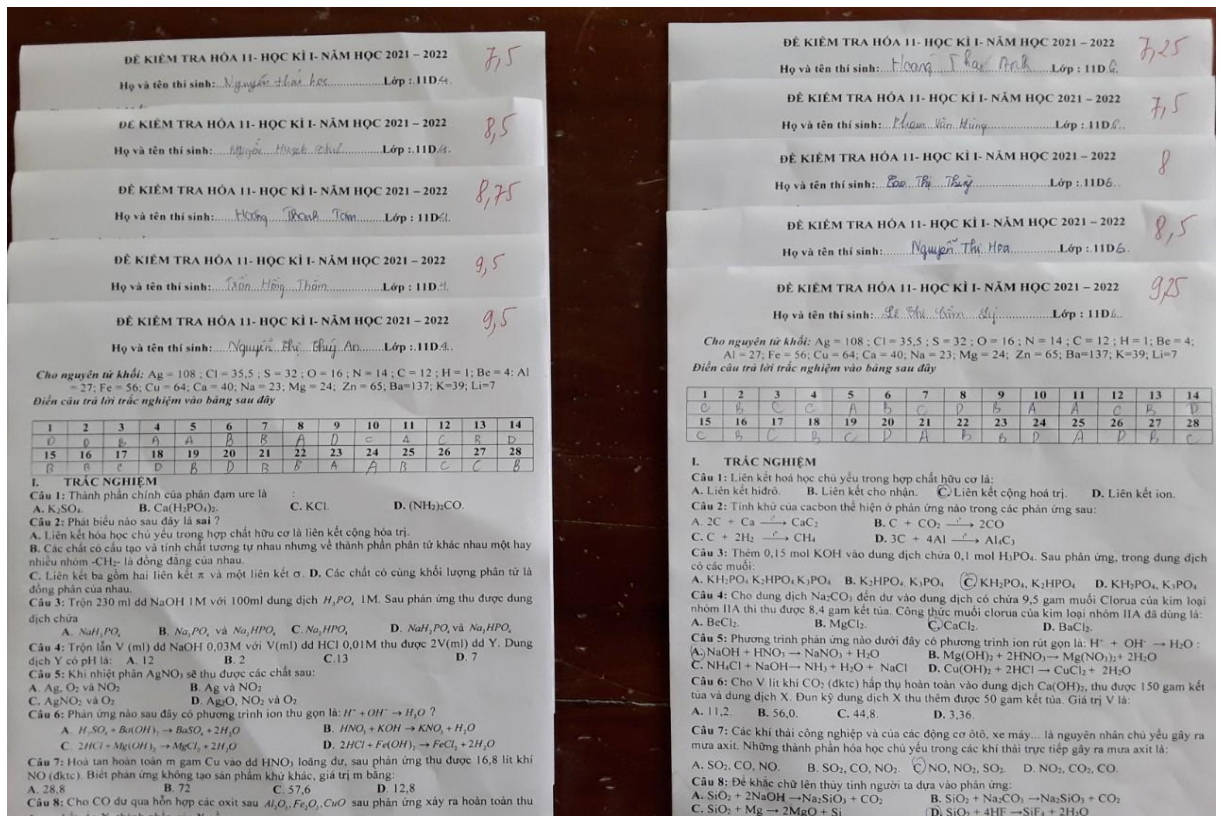 ĐỀ KIỂM TRA HÓA 11- HỌC KÌ I- NĂM HỌC 2021 – 2022 7,5
Họ và tên thí sinh:...Nguyễn thái học...Lớp :.11D4.
ĐỀ KIỂM TRA HÓA 11- HỌC KÌ I- NĂM HỌC 2021 – 2022 8,5
Họ và tên thí sinh:......Lớp :.11D4.
ĐỀ KIỂM TRA HÓA 11- HỌC KÌ I- NĂM HỌC 2021 – 2022 8,75
Họ và tên thí sinh:...Hoàng Thanh Tâm...Lớp : 11D4.
ĐỀ KIỂM TRA HÓA 11- HỌC KÌ I- NĂM HỌC 2021 – 2022 9,5
Họ và tên thí sinh:...Trần Hồng Thắm...Lớp : 11D4.
ĐỀ KIỂM TRA HÓA 11- HỌC KÌ I- NĂM HỌC 2021 – 2022 9,5
Họ và tên thí sinh:...Nguyễn Thị Thúy An...Lớp :.11D4..
Cho nguyên tử khối: Ag = 108 ; Cl = 35,5 ; S = 32 ; O = 16 ; N = 14 ; C = 12 ; H = 1; Be = 4; Al
= 27; Fe = 56; Cu = 64; Ca = 40; Na = 23; Mg = 24; Zn = 65; Ba=137; K=39; Li=7
Điền câu trả lời trắc nghiệm vào bảng sau đây
1 2 3 4 5 6 7 8 9 10 11 12 13 14
D D B A A B B A D C A C B D
15 16 17 18 19 20 21 22 23 24 25 26 27 28
B B C D B D B B A A B C C B
I. TRẮC NGHIỆM
Câu 1: Thành phần chính của phân đạm ure là :
A. K₂SO₄. B. Ca(H₂PO₄)₂. C. KCl. D. (NH₂)₂CO.
Câu 2: Phát biểu nào sau đây là sai ?
A. Liên kết hóa học chủ yếu trong hợp chất hữu cơ là liên kết cộng hóa trị.
B. Các chất có cấu tạo và tính chất tương tự nhau nhưng về thành phần phân tử khác nhau một hay
nhiều nhóm -CH₂- là đồng đẳng của nhau.
C. Liên kết ba gồm hai liên kết π và một liên kết σ. D. Các chất có cùng khối lượng phân tử là
đồng phân của nhau.
Câu 3: Trộn 230 ml dd NaOH 1M với 100ml dung dịch H₃PO₄ 1M. Sau phản ứng thu được dung
dịch chứa
A. NaH₂PO₄ B. Na₃PO₄ và Na₂HPO₄ C. Na₂HPO₄ D. NaH₂PO₄ và Na₂HPO₄
Câu 4: Trộn lẫn V (ml) dd NaOH 0,03M với V(ml) dd HCl 0,01M thu được 2V(ml) dd Y. Dung
dịch Y có pH là: A. 12 B. 2 C.13 D. 7
Câu 5: Khi nhiệt phân AgNO₃ sẽ thu được các chất sau:
A. Ag, O₂ và NO₂ B. Ag và NO₂
C. AgNO₂ và O₂ D. Ag₂O, NO₂ và O₂
Câu 6: Phản ứng nào sau đây có phương trình ion thu gọn là: H⁺ + OH⁻ → H₂O ?
A. H₂SO₄ + Ba(OH)₂ → BaSO₄ + 2H₂O B. HNO₃ + KOH → KNO₃ + H₂O
C. 2HCl + Mg(OH)₂ → MgCl₂ + 2H₂O D. 2HCl + Fe(OH)₂ → FeCl₂ + 2H₂O
Câu 7: Hoà tan hoàn toàn m gam Cu vào dd HNO₃ loãng dư, sau phản ứng thu được 16,8 lít khí
NO (đktc). Biết phản ứng không tạo sản phẩm khử khác, giá trị m bằng:
A. 28,8 B. 72 C. 57,6 D. 12,8
Câu 8: Cho CO dư qua hỗn hợp các oxit sau Al₂O₃,Fe₂O₃,CuO sau phản ứng xảy ra hoàn toàn thu
ĐỀ KIỂM TRA HÓA 11- HỌC KÌ I- NĂM HỌC 2021 – 2022 7,25
Họ và tên thí sinh:...Hoàng Thái Anh...Lớp : 11D6.
ĐỀ KIỂM TRA HÓA 11- HỌC KÌ I- NĂM HỌC 2021 – 2022 7,5
Họ và tên thí sinh:...Phạm Văn Hùng...Lớp : 11D6..
ĐỀ KIỂM TRA HÓA 11- HỌC KÌ I- NĂM HỌC 2021 – 2022 8
Họ và tên thí sinh:...Cao Thị Thuỳ...Lớp :.11D6..
ĐỀ KIỂM TRA HÓA 11- HỌC KÌ I- NĂM HỌC 2021 – 2022 8,5
Họ và tên thí sinh:...Nguyễn Thị Hoa...Lớp :.11D6.
ĐỀ KIỂM TRA HÓA 11- HỌC KÌ I- NĂM HỌC 2021 – 2022 9,25
Họ và tên thí sinh:...Lê Thị Cẩm...Lớp : 11D6..
Cho nguyên tử khối: Ag = 108 ; Cl = 35,5 ; S = 32 ; O = 16 ; N = 14 ; C = 12 ; H = 1; Be = 4;
Al = 27; Fe = 56; Cu = 64; Ca = 40; Na = 23; Mg = 24; Zn = 65; Ba=137; K=39; Li=7
Điền câu trả lời trắc nghiệm vào bảng sau đây
1 2 3 4 5 6 7 8 9 10 11 12 13 14
C B C C A B C D B A A C B D
15 16 17 18 19 20 21 22 23 24 25 26 27 28
C B C B C D A B B D A D B C
I. TRẮC NGHIỆM
Câu 1: Liên kết hoá học chủ yếu trong hợp chất hữu cơ là:
A. Liên kết hiđrô. B. Liên kết cho nhận. C. Liên kết cộng hoá trị. D. Liên kết ion.
Câu 2: Tính khử của cacbon thể hiện ở phản ứng nào trong các phản ứng sau:
A. 2C + Ca → CaC₂ B. C + CO₂ → 2CO
C. C + 2H₂ → CH₄ D. 3C + 4Al → Al₄C₃
Câu 3: Thêm 0,15 mol KOH vào dung dịch chứa 0,1 mol H₃PO₄. Sau phản ứng, trong dung dịch
có các muối:
A. KH₂PO₄ K₂HPO₄ K₃PO₄ B. K₂HPO₄, K₃PO₄ C. KH₂PO₄, K₂HPO₄ D. KH₂PO₄, K₃PO₄
Câu 4: Cho dung dịch Na₂CO₃ đến dư vào dung dịch có chứa 9,5 gam muối Clorua của kim loại
nhóm IIA thì thu được 8,4 gam kết tủa. Công thức muối clorua của kim loại nhóm IIA đã dùng là:
A. BeCl₂. B. MgCl₂. C. CaCl₂. D. BaCl₂.
Câu 5: Phương trình phản ứng nào dưới đây có phương trình ion rút gọn là: H⁺ + OH⁻ → H₂O :
A. NaOH + HNO₃ → NaNO₃ + H₂O B. Mg(OH)₂ + 2HNO₃→ Mg(NO₃)₂+ 2H₂O
C. NH₄Cl + NaOH→ NH₃ + H₂O + NaCl D. Cu(OH)₂ + 2HCl → CuCl₂ + 2H₂O
Câu 6: Cho V lít khí CO₂ (đktc) hấp thụ hoàn toàn vào dung dịch Ca(OH)₂, thu được 150 gam kết
tủa và dung dịch X. Đun kỹ dung dịch X thu thêm được 50 gam kết tủa. Giá trị V là:
A. 11,2. B. 56,0. C. 44,8. D. 3,36.
Câu 7: Các khí thải công nghiệp và của các động cơ ôtô, xe máy... là nguyên nhân chủ yếu gây ra
mưa axit. Những thành phần hóa học chủ yếu trong các khí thải trực tiếp gây ra mưa axit là:
A. SO₂, CO, NO. B. SO₂, CO, NO₂. C. NO, NO₂, SO₂. D. NO₂, CO₂, CO.
Câu 8: Để khắc chữ lên thủy tinh người ta dựa vào phản ứng:
A. SiO₂ + 2NaOH →Na₂SiO₃ + CO₂ B. SiO₂ + Na₂CO₃ →Na₂SiO₃ + CO₂
C. SiO₂ + Mg → 2MgO + Si D. SiO₂ + 4HF →SiF₄ + 2H₂O